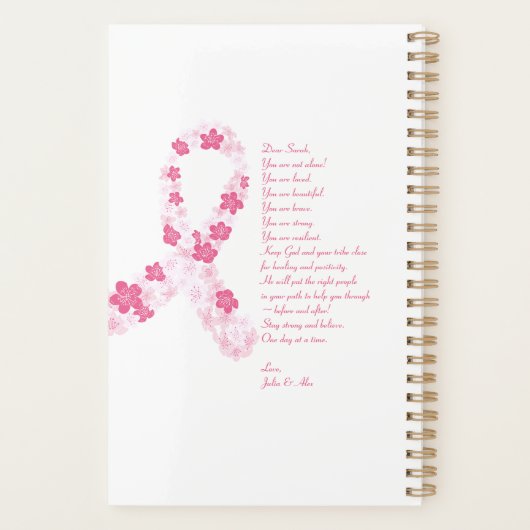 Dear Sarah,
You are not alone!
You are loved.
You are beautiful.
You are brave.
You are strong.
You are resilient.
Keep God and your tribe close
for healing and positivity.
He will put the right people
in your path to help you through
~ before and after!
Stay strong and believe.
One day at a time.
Love,
Julia & Alex